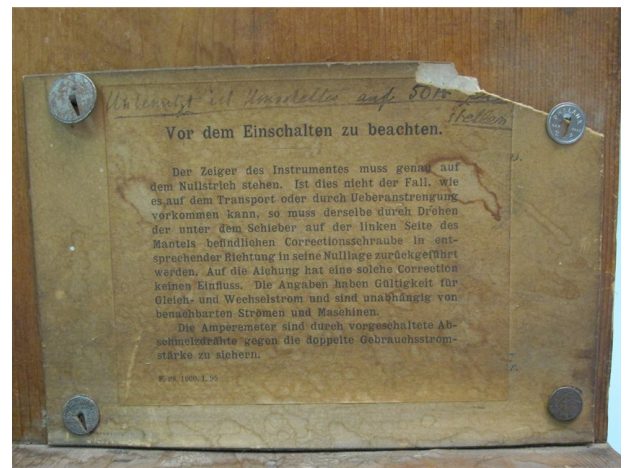 auf 50
Vor dem Einschalten zu beachten.
Der Zeiger des Instrumentes muss genau auf
dem Nullstrich stehen. Ist dies nicht der Fall, wie
es auf dem Transport oder durch Ueberanstrengung
vorkommen kann, so muss derselbe durch Drehen
der unter dem Schieber auf der linken Seite des
Mantels befindlichen Correctionsschraube in ent-
sprechender Richtung in seine Nulllage zurückgeführt
werden. Auf die Aichung hat eine solche Correction
keinen Einfluss. Die Angaben haben Gültigkeit für
Gleich- und Wechselstrom und sind unabhängig von
benachbarten Strömen und Maschinen.
Die Amperemeter sind durch vorgeschaltete Ab-
schmelzdrähte gegen die doppelte Gebrauchsstrom-
stärke zu sichern.